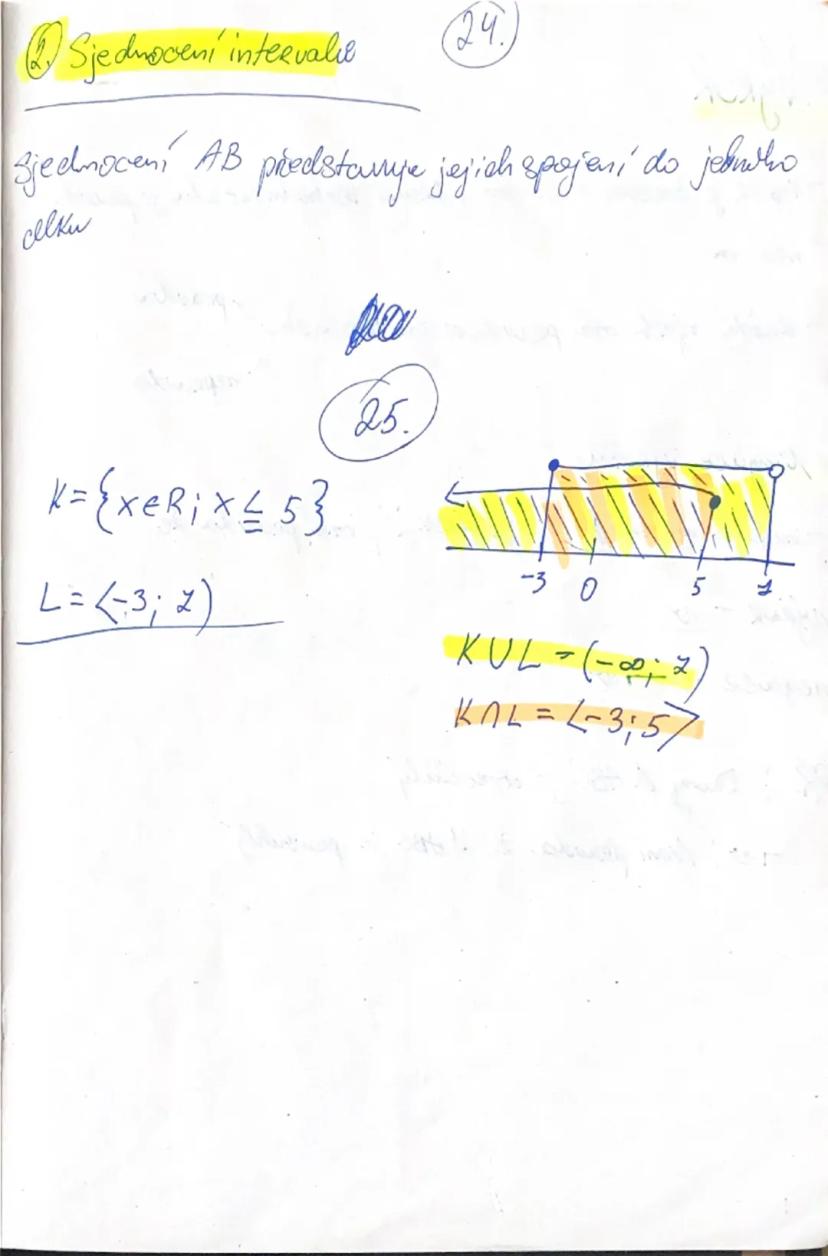 2. Sjednocení intervalů
24.
Sjednocení AB představuje jejich spojení do jednoho
celku
25.
K = {x∈R; x ≤ 5}
L = ⟨-3; 7)
-3 0 5 7
K∪L = (-∞; 7)
K∩L = ⟨-3; 5⟩